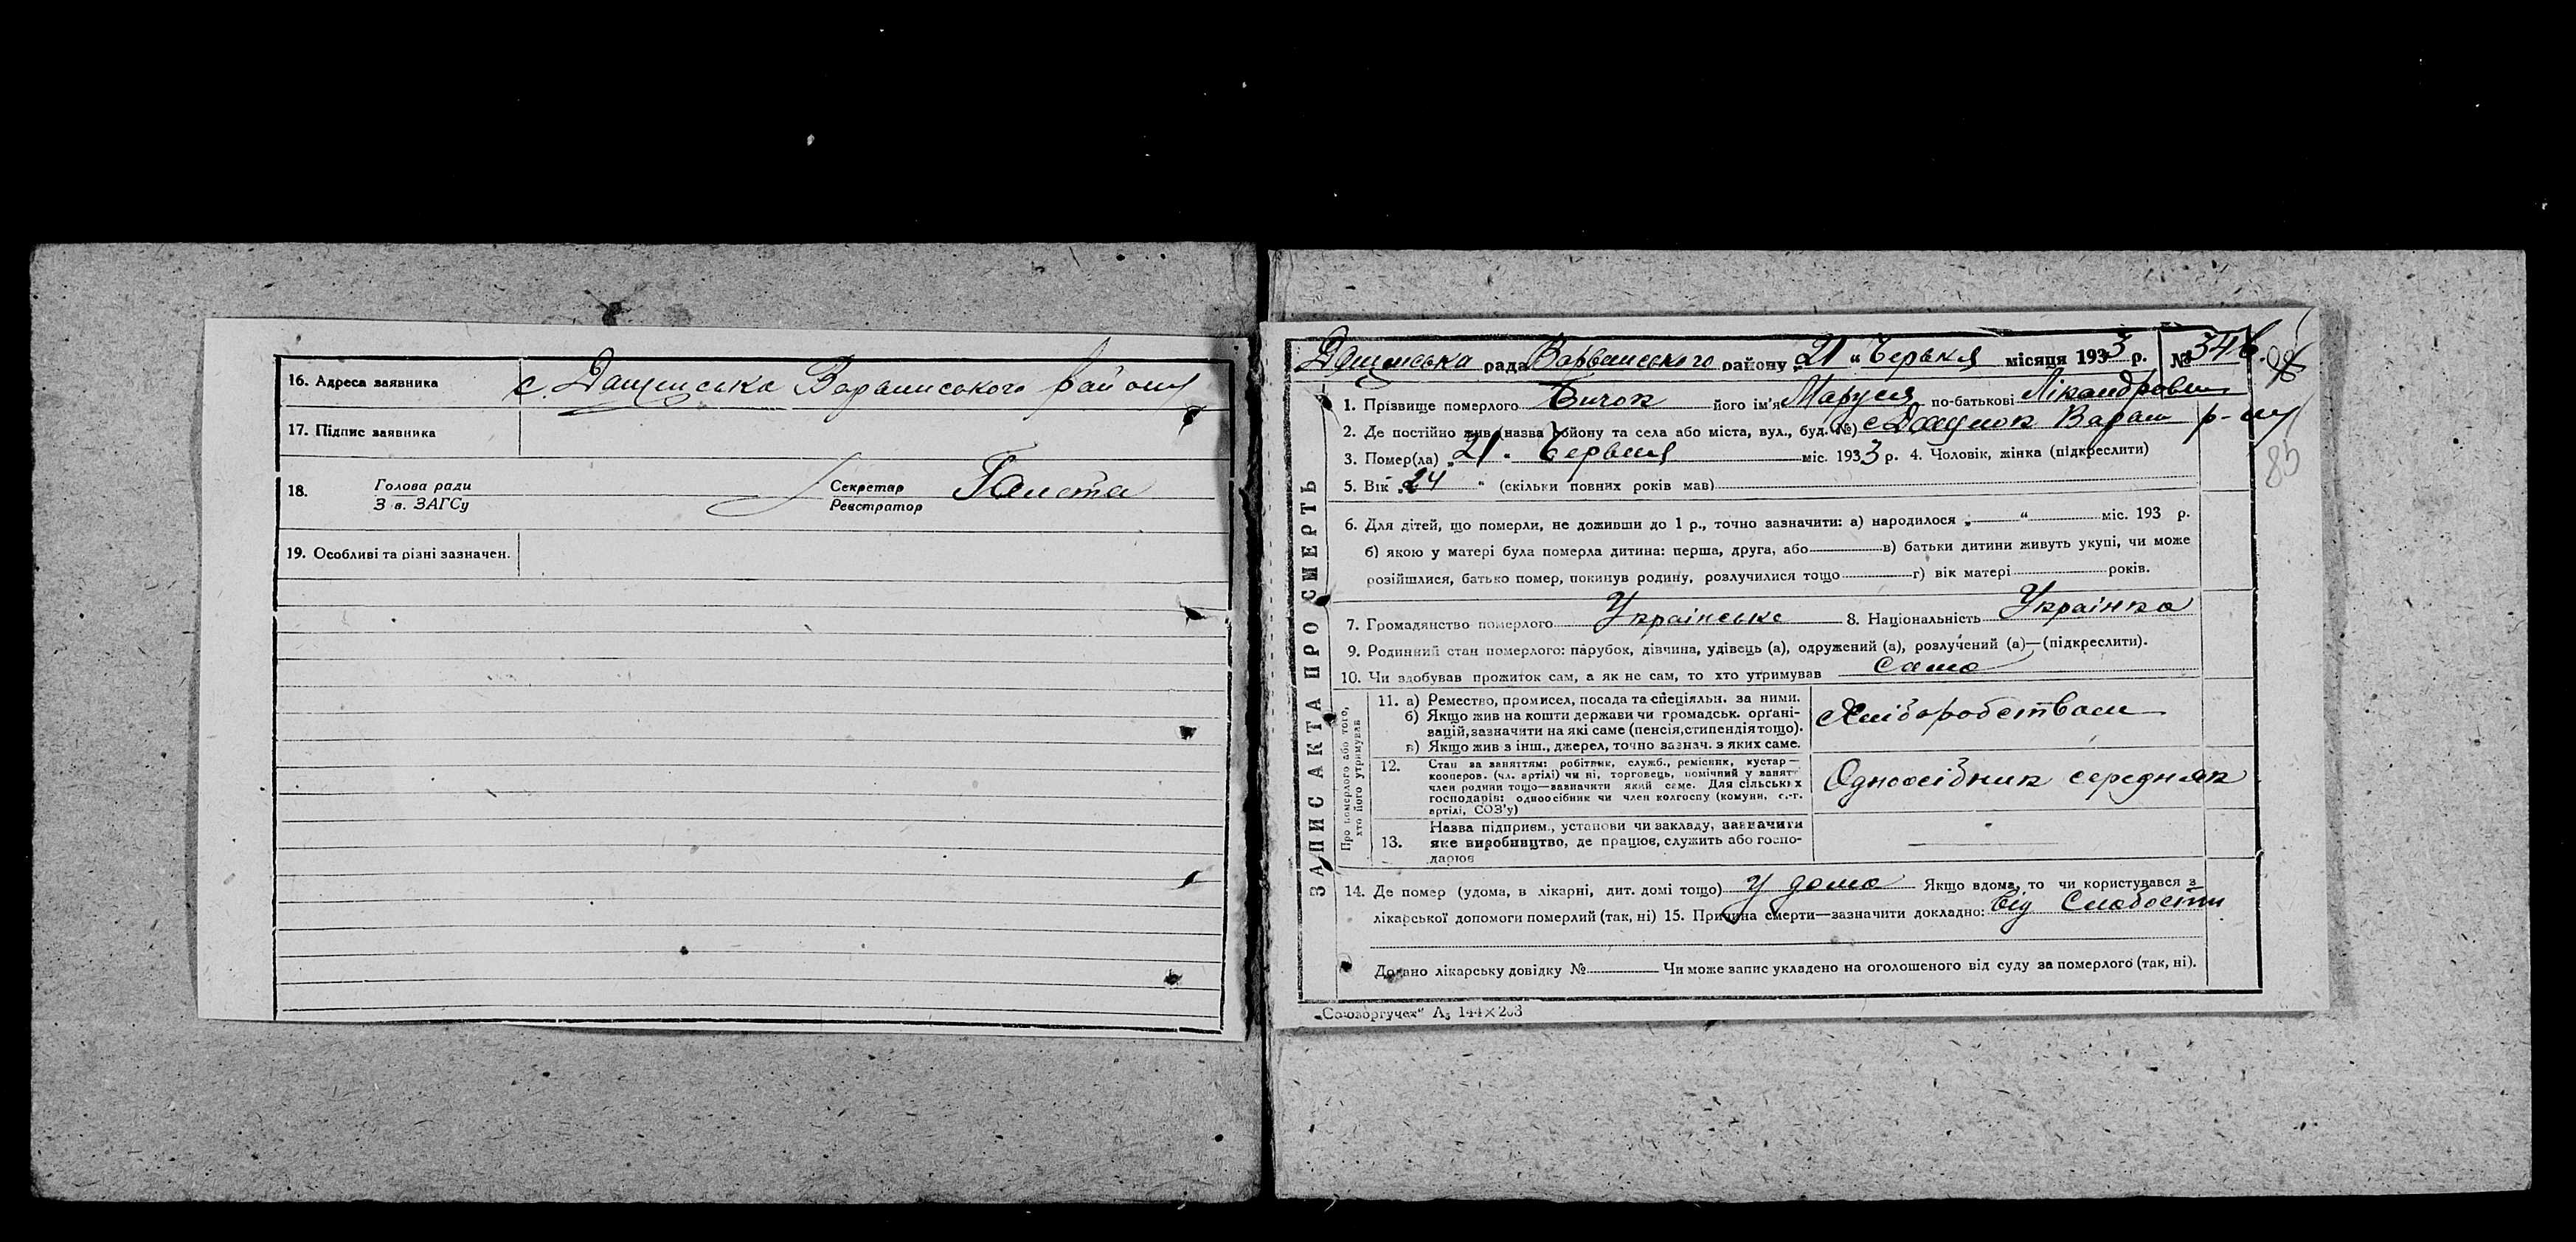 16. Адреса заявника с. Дащенська Варвинського району
17. Підпис заявника
18. Голова ради Секретар
З в. ЗАГСу Реєстратор
19. Особливі та різні зазначен.
ЗАПИС АКТА ПРО СМЕРТЬ
Дащенська рада Варвинського району „21 “ Червня місяця 1933 р. №
1. Прізвище померлого Бичок його ім'я Маруся по-батькові Лікандровна
2. Де постійно жив (назва району та села або міста, вул., буд. №) с Дащенк Варвин р-ну
3. Помер(ла) „21“ Червня міс. 1933 р. 4. Чоловік, жінка (підкреслити)
5. Вік „24 “ (скільки повних років мав)
6. Для дітей, що померли, не доживши до 1 р., точно зазначити: а) народилося „ “ міс. 193 р.
б) якою у матері була померла дитина: перша, друга, або в) батьки дитини живуть укупі, чи може
розійшлися, батько помер, покинув родину, розлучилися тощо г) вік матері років.
7. Громадянство померлого Українське 8. Національність Українка
9. Родинний стан померлого: парубок, дівчина, удівець (а), одружений (а), розлучений (а)—(підкреслити).
10. Чи здобував прожиток сам, а як не сам, то хто утримував сама
Про померлого або того, хто його утримував
11. а) Ремество, промисел, посада та спеціяльн. за ними.
б) Якщо жив на кошти держави чи громадськ. орґані-
зацій, зазначити на які саме (пенсія, стипендія тощо).
в) Якщо жив з інш., джерел, точно зазнач. з яких саме.
Хліборобством
12. Стан за заняттям: робітник, служб., ремісник, кустар—
кооперов. (чл. артілі) чи ні, торговець, помічний у занятт
член родини тощо—зазначити який саме. Для сільських
господарів: одноосібник чи член колгоспу (комуни, с.-г.
артілі, СОЗ'у)
Одноосібник середняк
13. Назва підприєм., установи чи закладу, зазначити
яке виробництво, де працює, служить або госпо-
дарює
14. Де помер (удома, в лікарні, дит. домі тощо) у дома Якщо вдома, то чи користувався з
лікарської допомоги померлий (так, ні) 15. Причина смерти—зазначити докладно: від Слабости
Додано лікарську довідку № Чи може запис укладено на оголошеного від суду за померлого (так, ні).
„Союзоргучет“ А₅ 144×203
85